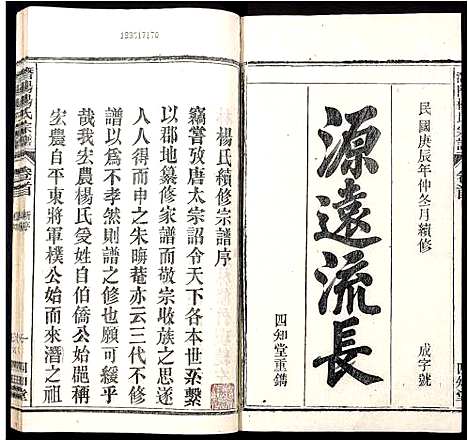 民國庚辰年仲冬月續修
源遠流長
成字號
四知堂重鐫
楊氏續修宗譜序
竊嘗攷唐太宗詔令天下各本世系繫
以郡地纂修家譜而敬宗收族之思遂
人人得而申之朱晦菴亦云三代不修
譜以爲不孝然則譜之修也願可緩乎
哉我宏農楊氏爰姓自伯僑公始嗣稱
宏農自平東將軍樸公始而來潛之祖
193517170